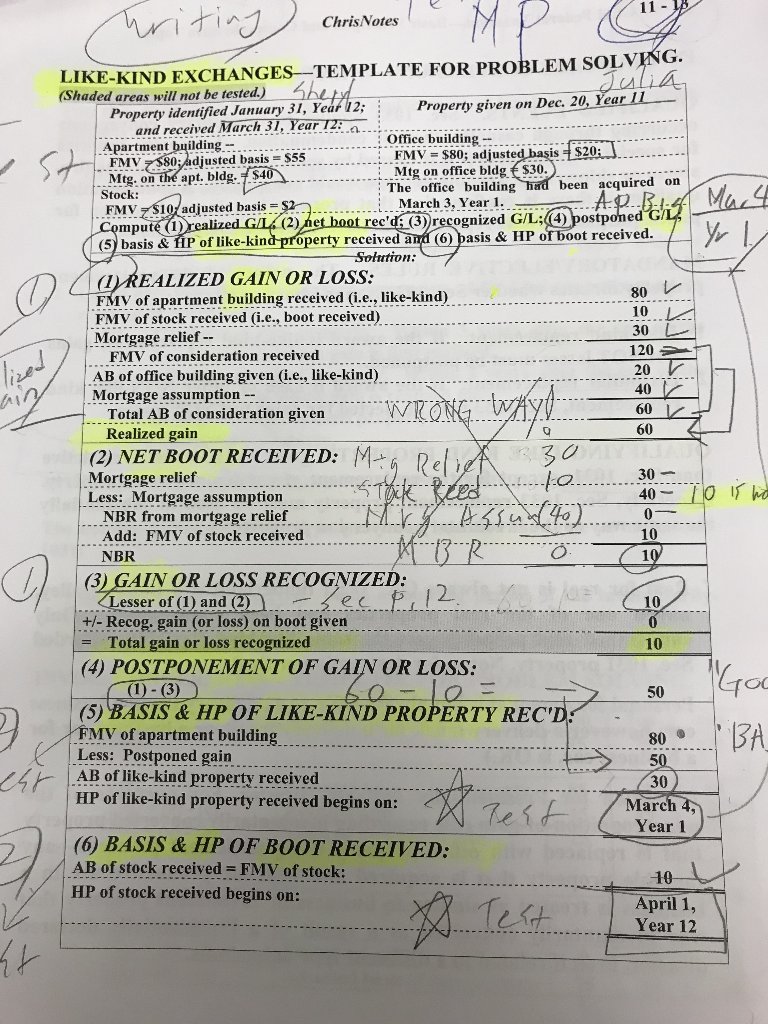 Writing
ChrisNotes
MP
11 - 13
LIKE-KIND EXCHANGES—TEMPLATE FOR PROBLEM SOLVING.
(Shaded areas will not be tested.)
Julia
Property identified January 31, Year 12;
and received March 31, Year 12:
Apartment building --
FMV = $80; adjusted basis = $55
Mtg. on the apt. bldg. = $40
Stock:
FMV = $10; adjusted basis = $2
Property given on Dec. 20, Year 11
Office building --
FMV = $80; adjusted basis = $20;
Mtg on office bldg = $30.
The office building had been acquired on
March 3, Year 1.
Mar. 4
Yr 1
Compute (1) realized G/L; (2) net boot rec'd; (3) recognized G/L; (4) postponed G/L;
(5) basis & HP of like-kind property received and (6) basis & HP of boot received.
Solution:
(1) REALIZED GAIN OR LOSS:
FMV of apartment building received (i.e., like-kind) 80
FMV of stock received (i.e., boot received) 10
Mortgage relief -- 30
FMV of consideration received 120
AB of office building given (i.e., like-kind) 20
Mortgage assumption -- 40
Total AB of consideration given 60
WRONG WAY!
Realized gain 60
(2) NET BOOT RECEIVED: Mtg Relief 30
Mortgage relief 30
Stock Recd 10
Less: Mortgage assumption 40
10 is
NBR from mortgage relief 0
Mtg Assum (40)
Add: FMV of stock received 10
NBR 10
NBR 0
(3) GAIN OR LOSS RECOGNIZED:
Lesser of (1) and (2) - See P. 12. 10
+/- Recog. gain (or loss) on boot given 0
= Total gain or loss recognized 10
(4) POSTPONEMENT OF GAIN OR LOSS:
(1) - (3) 60 - 10 = 50
(5) BASIS & HP OF LIKE-KIND PROPERTY REC'D:
FMV of apartment building 80
Less: Postponed gain 50
AB of like-kind property received 30
HP of like-kind property received begins on: Test March 4,
Year 1
(6) BASIS & HP OF BOOT RECEIVED:
AB of stock received = FMV of stock: 10
HP of stock received begins on: Test April 1,
Year 12